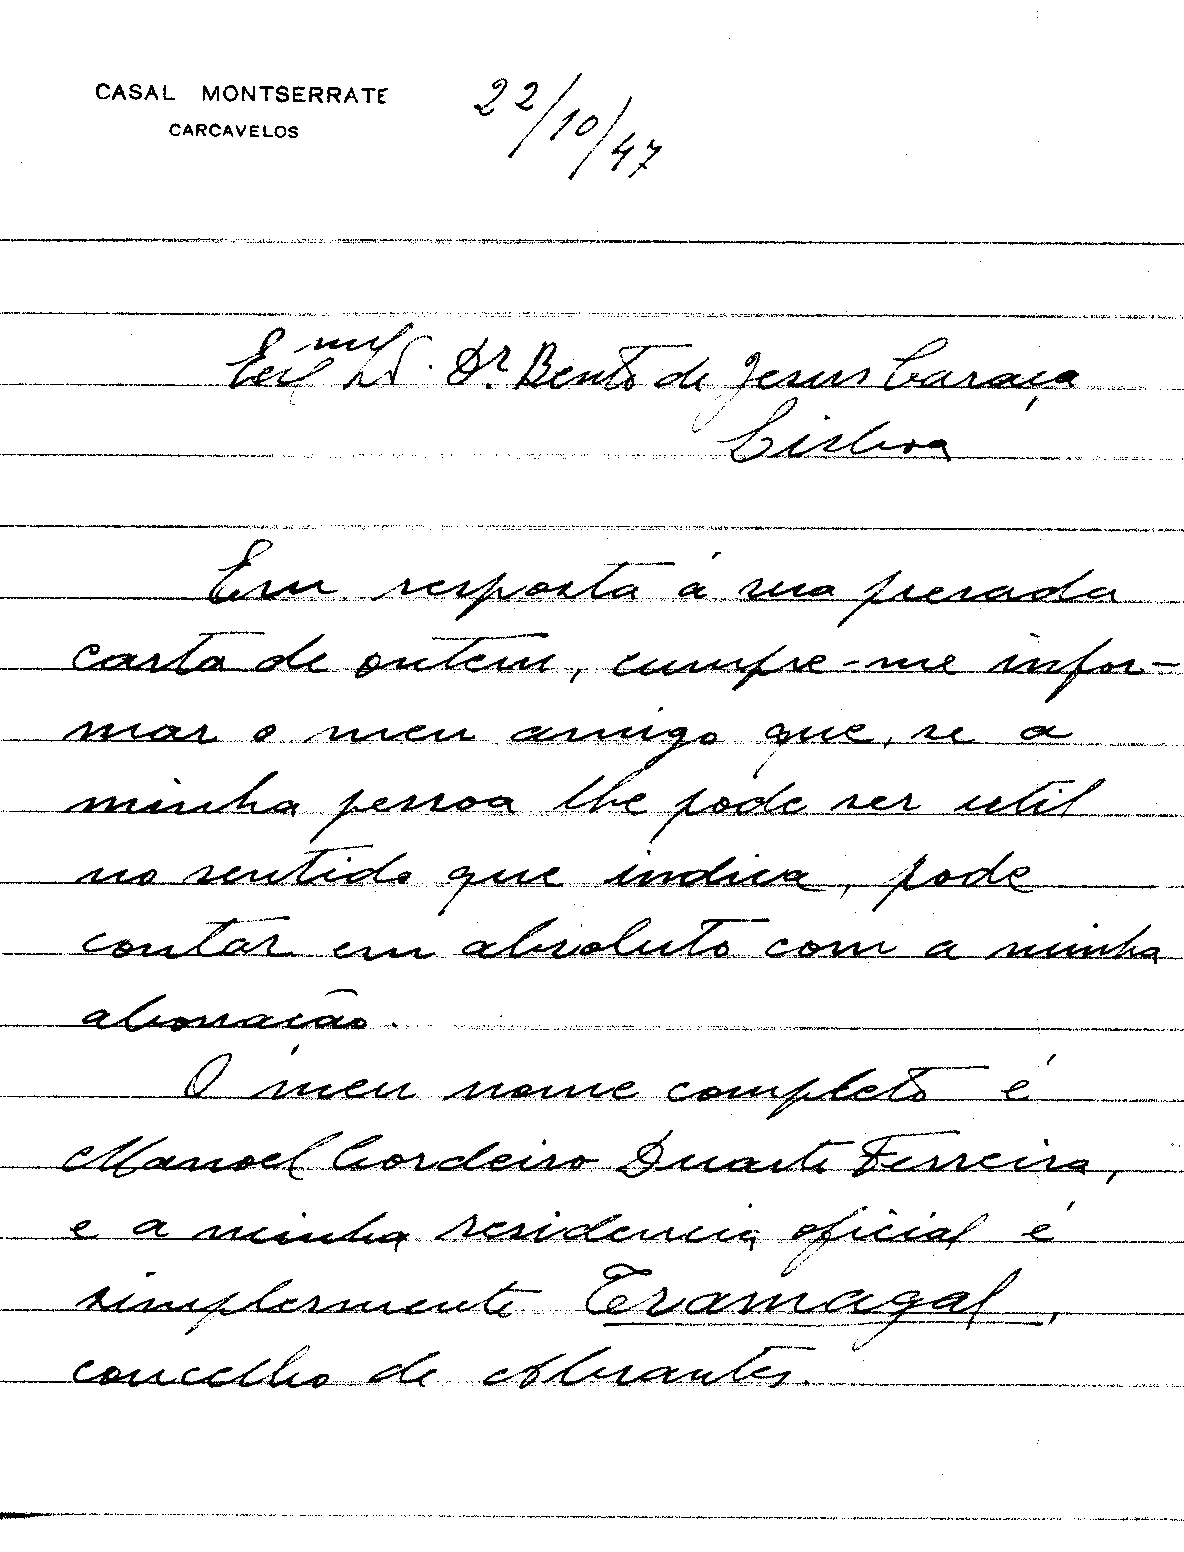 CASAL MONTSERRATE
CARCAVELOS
22/10/47
Dr. Bento de Jesus Caraça
Lisboa
Em resposta á sua presada
carta de ontem, cumpre-me infor-
mar o meu amigo que, se a
minha pessoa lhe pode ser util
no sentido que indica, pode
contar em absoluto com a minha
abonação.
O meu nome completo é
Manoel Cordeiro Duarte Ferreira,
e a minha residencia oficial é
simplesmente Tramagal,
concelho de Abrantes.